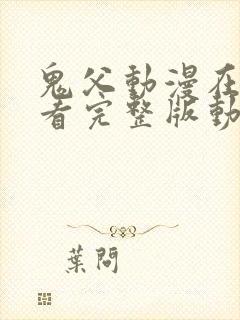 鬼父動漫在
看完整版動
葉問